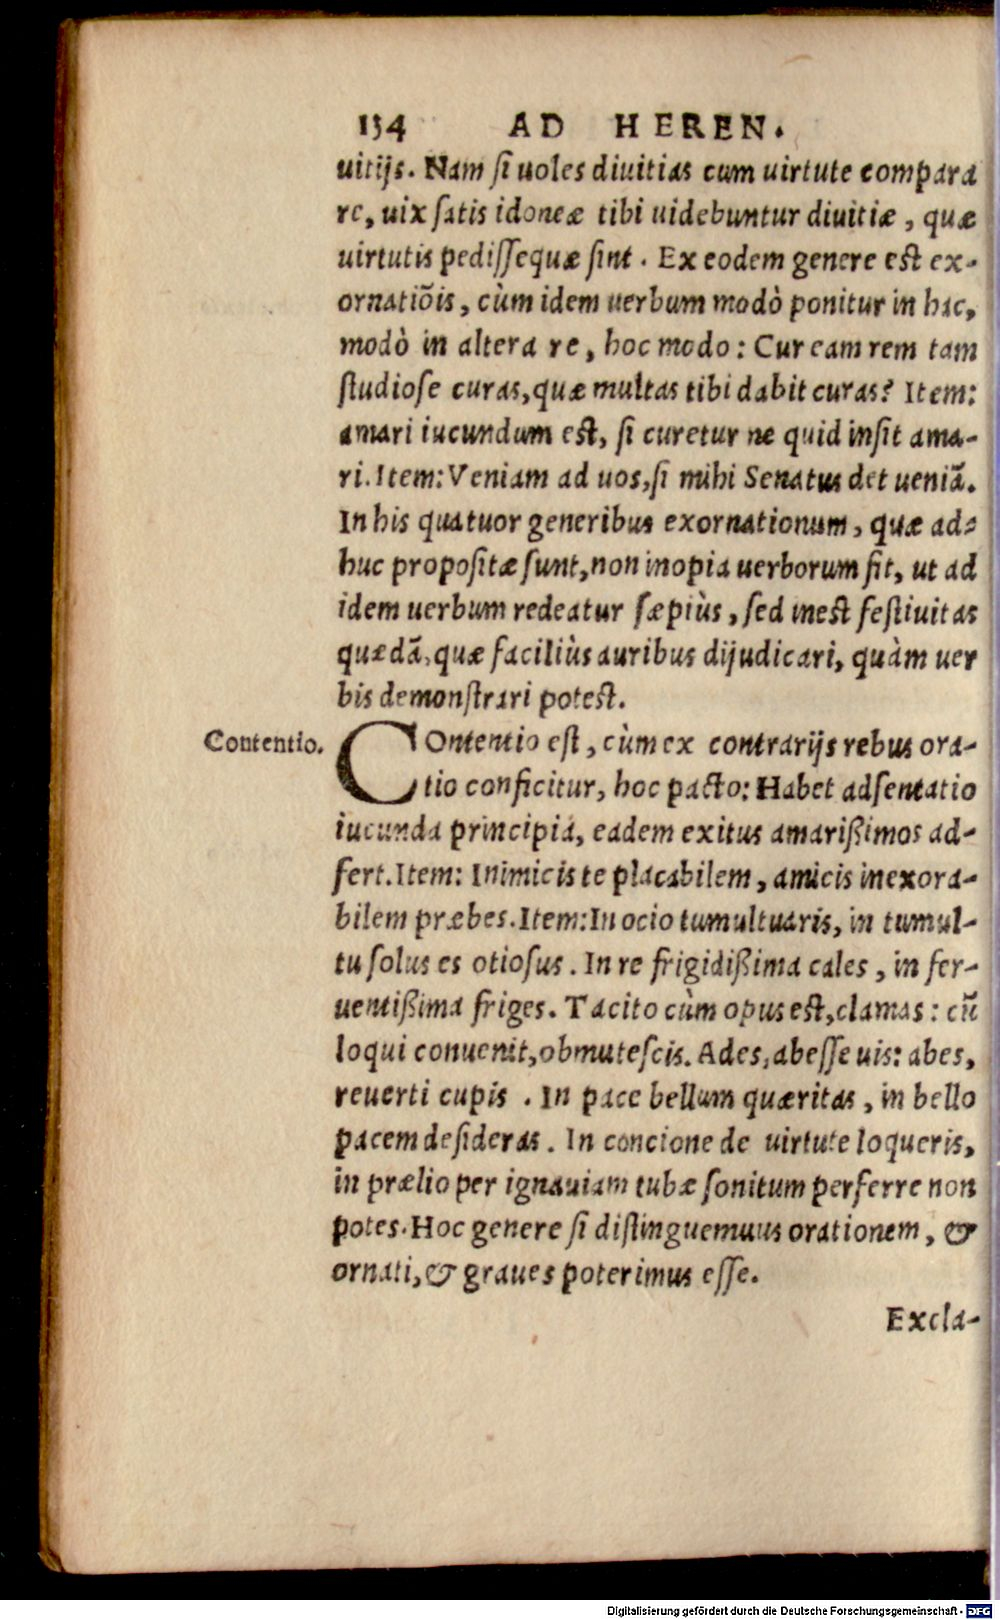 154 AD HEREN.
uitijs. Nam ſi uoles diuitias cum uirtute compara
re, uix ſatis idoneæ tibi uidebuntur diuitiæ, quæ
uirtutis pediſſequæ ſint. Ex eodem genere est ex-
ornatiõis, cùm idem uerbum modò ponitur in hac,
modò in altera re, hoc modo: Cur eam rem tam
ſtudioſe curas, quæ multas tibi dabit curas? Item:
amari iucundum est, ſi curetur ne quid inſit ama-
ri. Item: Veniam ad uos, ſi mihi Senatus det ueniã.
In his quatuor generibus exornationum, quæ ad-
huc propoſitæ ſunt, non inopia uerborum fit, ut ad
idem uerbum redeatur ſæpiùs, ſed inest feſtiuitas
quædã, quæ faciliùs auribus dijudicari, quàm uer
bis demonſtrari potest.
Contentio.
COntentio eſt, cùm ex contrarijs rebus ora-
tio conficitur, hoc pacto: Habet adſentatio
iucunda principia, eadem exitus amarißimos ad-
fert. Item: Inimicis te placabilem, amicis inexora-
bilem præbes. Item: In ocio tumultuaris, in tumul-
tu ſolus es otioſus. In re frigidißima cales, in fer-
uentißima friges. Tacito cùm opus est, clamas: cũ
loqui conuenit, obmuteſcis. Ades, abeſſe uis: abes,
reuerti cupis. In pace bellum quæritas, in bello
pacem deſideras. In concione de uirtute loqueris,
in prælio per ignauiam tubæ ſonitum perferre non
potes. Hoc genere ſi diſtinguemuus orationem, &
ornati, & graues poterimus eſſe.
Excla-
Digitalisierung gefördert durch die Deutsche Forschungsgemeinschaft - DFG